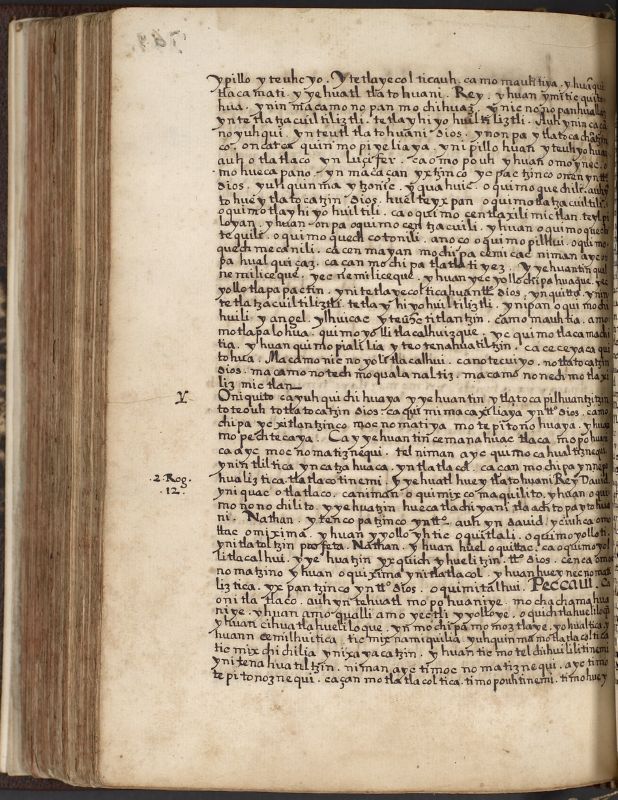 ypillo yteuhcyo. Ytetlayecolticauh. camo mauhtiya. yhuan qui
tlacamati. yyehuatl tlatohuani. Rey. yhuan ymitic quito
hua. ynin macamo no pan mochihuaz.
yn tetlatzacuiltiliztli. tetlayhiyohuiltiliztli. Auh ynin
no yuhqui. ynteutl tlatohuani Dios. ynonpa ytlatocachantzin
co. oncatca quinmopiyeliaya. ynipillohuan yteuhyohuan
auh otlatlaco yn luçifer. ca omopouh yhuan omonec. o
mohuecapano. yn maçaçan yxtzinco ycpactzinco onen yn tto
dios. yuhquinma ytzonic. yquahuic. oquimoquechili. auh yn
tohuey tlatocatzin Dios. huel teyxpan oquimotlatzacuiltili.
oquimotlayhiyohuiltili. ca oquimocentlaxili mictlan. teylpi
loyan. yhuan onpa oquimocentzacuili. yhuan oquimoquech
tequili. oquimoquechcotonili. anoço oquimopilhui. oquimo
quechmecanili. ca cenmayan mochipa cemicac niman ayc on
pa hualquiçaz. ca çan mochipa tlatlatiyez. Yyehuantin qual
nemiliceque. yecnemiliceque. yhuan yecyollo chipahuaque. yec
yollo tlapapactin. ynitetlayecolticahuan tto Dios. ynquitta ynin
tetlatzacuiltiliztli. tetlayhiyohuiltiliztli. ynipan oquimochi
huili yangel. ylhuicac yteuhctitlantzin. camo mauhtia. amo
motlapalohua. quimoyollitlacalhuizque. yc quimotlacamachi
tia. yhuan quimopialilia yteotenahuatiltzin. ca ceceyaca qui
tohua. Macamo nicnoyolitlacalhui. ca notecuiyo. notlatocatzin
Dios. macamo notech moqualanaltiz. macamo nechmotlaxi
liz mictlan
Y
Oniquito ca yuh quichihuaya yyehuantin ytlatocapilhuantzitzin
toteouh totlatocatzin Dios. ca quimimacaxiliaya yn tto dios. camo
chipa ycxitlantzinco mocnomatiya motepitonohuaya. yhuan
mopechtecaya. Ca yyehuantin cemanahuac tlaca. mopohuani
ca ayc mocnomatiznequi. tel niman ayc quimocahualtiznequi
ynin tlilticayn catzahuaca. yntlatlacol. ca çan mochipa ynnepo
hualiztica. tlatlacotinemi. Yyehuatl huey tlatohuani Rey David
2. Reg.
12.
yniquac otlatlaco. ca niman oquimixcomaquilito. yhuan oqui
mononochilito. yyehuatzin huecatlachiyani. tlaachtopaytohua
ni. Nathan. ytencopatzinco yn tto. auh yn David. yc iuhca omo
ttac omixima. yhuan yyollo yhtic oquitlali. oquimoyolloti.
ynitlatoltzin profeta. Nathan. yhuan huel oquittac. ca oquimoyol
litlacalhui. yyehuatzin yxquich yhuelitzin. tto Dios. cenca omoc
nomatzino yhuan oquixima ynitlatlacol. yhuan huey necnomati
liztica. yxpantzinco yn tto Dios. oquimitalhui. Peccaui. Ca
onitlatlaco. auh yn tehuatl mopohuaniye. mochachamahua
niye. yhuan amo qualli amo yectli yyolloye. oquichtlahueliloca
yhuan cihuatlahueliloque. yn mochipa momoztlaye. yohualtica. y
huan cemilhuitica. ticmixnamiquilia. yuhquinma motlatlacoltica
ticmixchichilia ynixayacatzin. yhuan ticmotelchihuililitinemi
ynitenahuatiltzin. niman ayc timocnomatiznequi. ayc timo
tepitonoznequi. ca çan motlatlacoltica. timopouhtinemi. timohuey